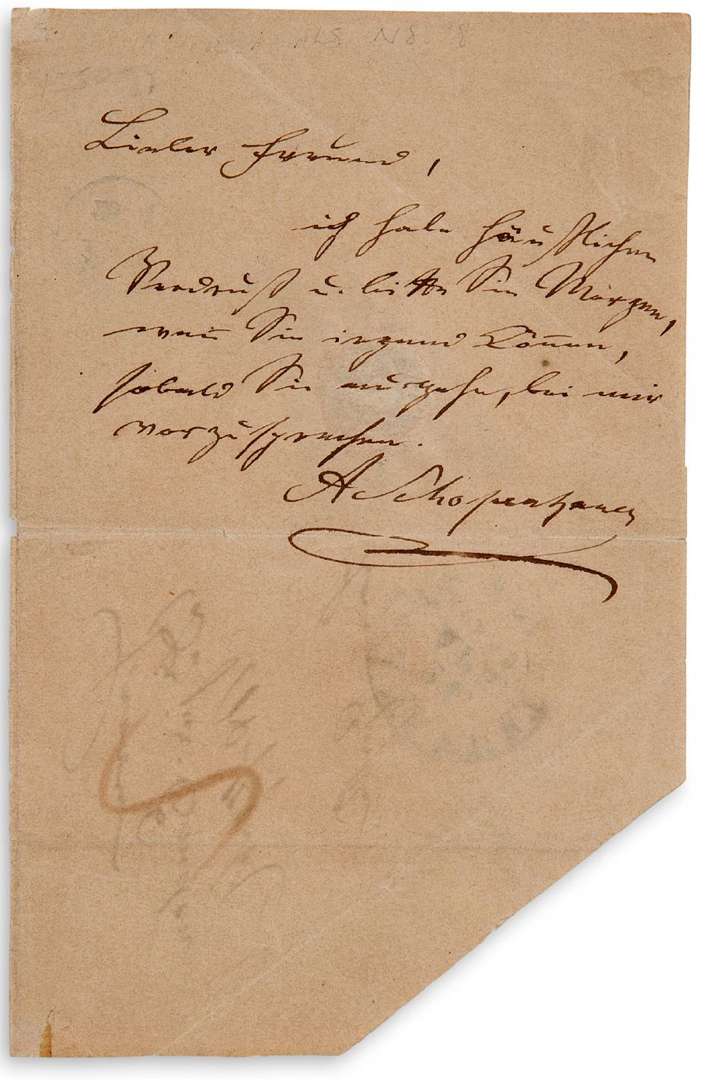 Lieber Freund,
ich habe häuslichen
Verdruß u. bitte Sie Morgen,
wenn Sie irgend können,
sobald Sie ausgehn, bei mir
vorzusprechen.
A Schopenhauer